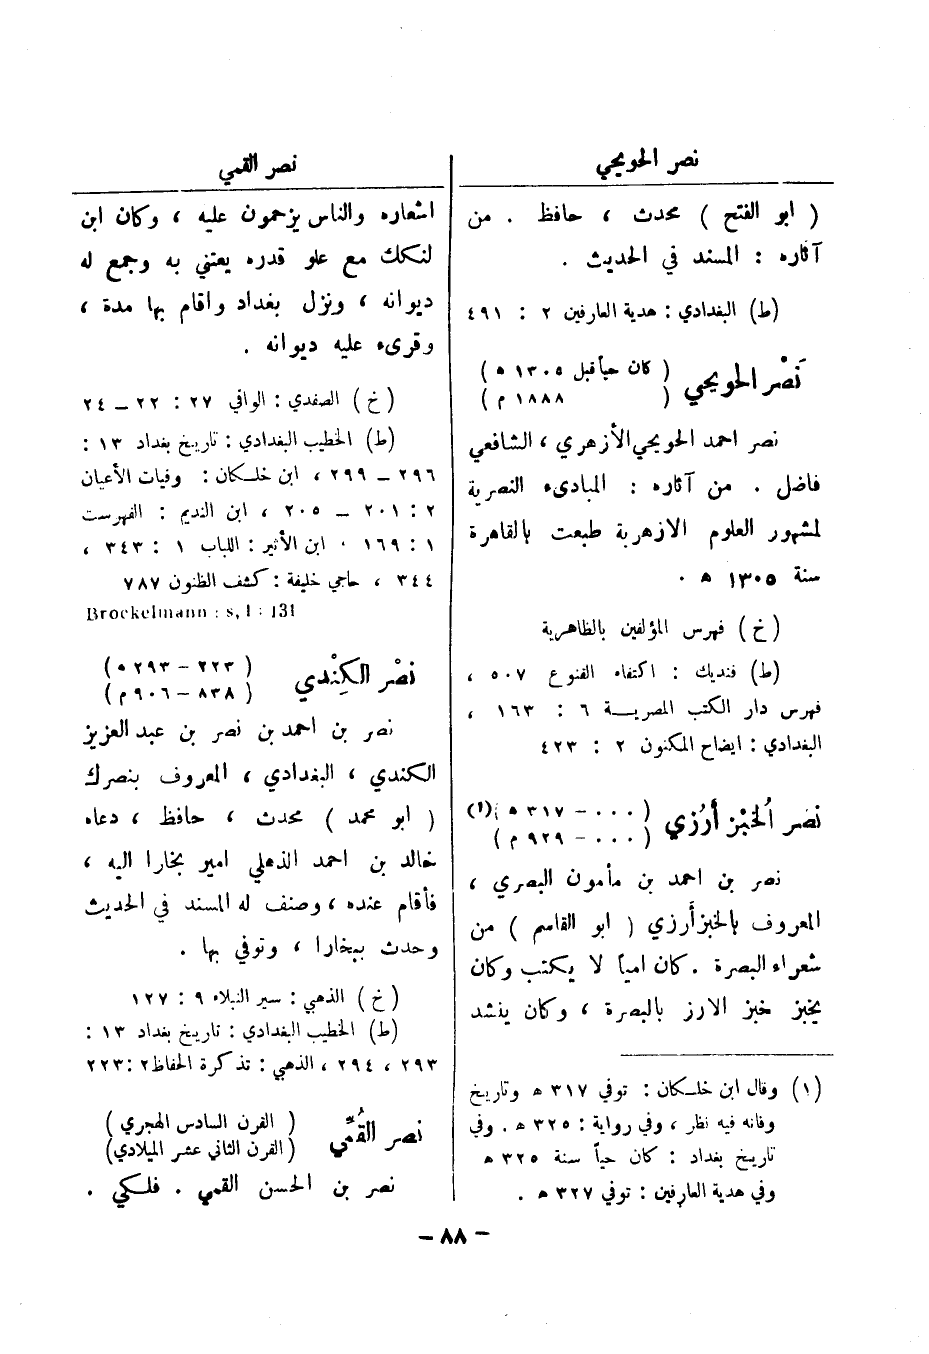 نصر الحويجي
( ابو الفتح ) محدث ، حافظ . من
آثاره : المسند في الحديث .
(ط) البغدادي : هدية العارفين ٢ : ٤٩١
نَصْر الحويجي ( كان حياً قبل ١٣٠٥ ه )
( ١٨٨٨ م )
نصر احمد الحويجي الأزهري ، الشافعي
فاضل . من آثاره : المبادىء النصرية
لمشهور العلوم الازهرية طبعت بالقاهرة
سنة ١٣٠٥ ه .
(خ) فهرس المؤلفين بالظاهرية
(ط) فنديك : اكتفاء القنوع ٥٠٧ ،
فهرس دار الكتب المصرية ٦ : ١٦٣ ،
البغدادي : ايضاح المكنون ٢ : ٤٢٣
نصر الُخبْز أرُزي ( ٠٠٠ - ٣١٧ ه )(١)
( ٠٠٠ - ٩٢٩ م )
نصر بن احمد بن مأمون البصري ،
المعروف بالخبزأرزي ( ابو القاسم ) من
شعراء البصرة . كان امياً لا يكتب وكان
يخبز خبز الارز بالبصرة ، وكان ينشد
(١) وقال ابن خلكان : توفي ٣١٧ ه وتاريخ
وفاته فيه نظر ، وفي رواية : ٣٢٥ ه . وفي
تاريخ بغداد : كان حياً سنة ٣٢٥ ه
وفي هدية العارفين : توفي ٣٢٧ ه .
نصر القمي
اشعاره والناس يزحمون عليه ، وكان ابن
لنكك مع علو قدره يعتني به وجمع له
ديوانه ، ونزل بغداد واقام بها مدة ،
وقرىء عليه ديوانه .
(خ) الصفدي : الوافي ٢٧ : ٢٢ – ٢٤
(ط) الخطيب البغدادي : تاريخ بغداد ١٣ :
٢٩٦ – ٢٩٩ ، ابن خلكان : وفيات الأعيان
٢ : ٢٠١ – ٢٠٥ ، ابن النديم : الفهرست
١ : ١٦٩ . ابن الأثير : اللباب ١ : ٣٤٣ ،
٣٤٤ ، حاجي خليفة : كشف الظنون ٧٨٧
Brockelmann : s, I : 131
نصْر الكِنْدي ( ٢٢٣ – ٢٩٣ ه )
( ٨٣٨ – ٩٠٦ م )
نصر بن احمد بن نصر بن عبد العزيز
الكندي ، البغدادي ، المعروف بنصرك
( ابو محمد ) محدث ، حافظ ، دعاه
خالد بن احمد الذهلي امير بخارا اليه ،
فأقام عنده ، وصنف له المسند في الحديث
وحدث ببخارا ، وتوفي بها .
(خ) الذهبي : سير النبلاء ٩ : ١٢٧
(ط) الخطيب البغدادي : تاريخ بغداد ١٣ :
٢٩٣ ، ٢٩٤ ، الذهبي : تذكرة الحفاظ ٢ : ٢٢٣
نصر القُمِّي ( القرن السادس الهجري )
( القرن الثاني عشر الميلادي)
نصر بن الحسن القمي . فلكي .
– ٨٨ –